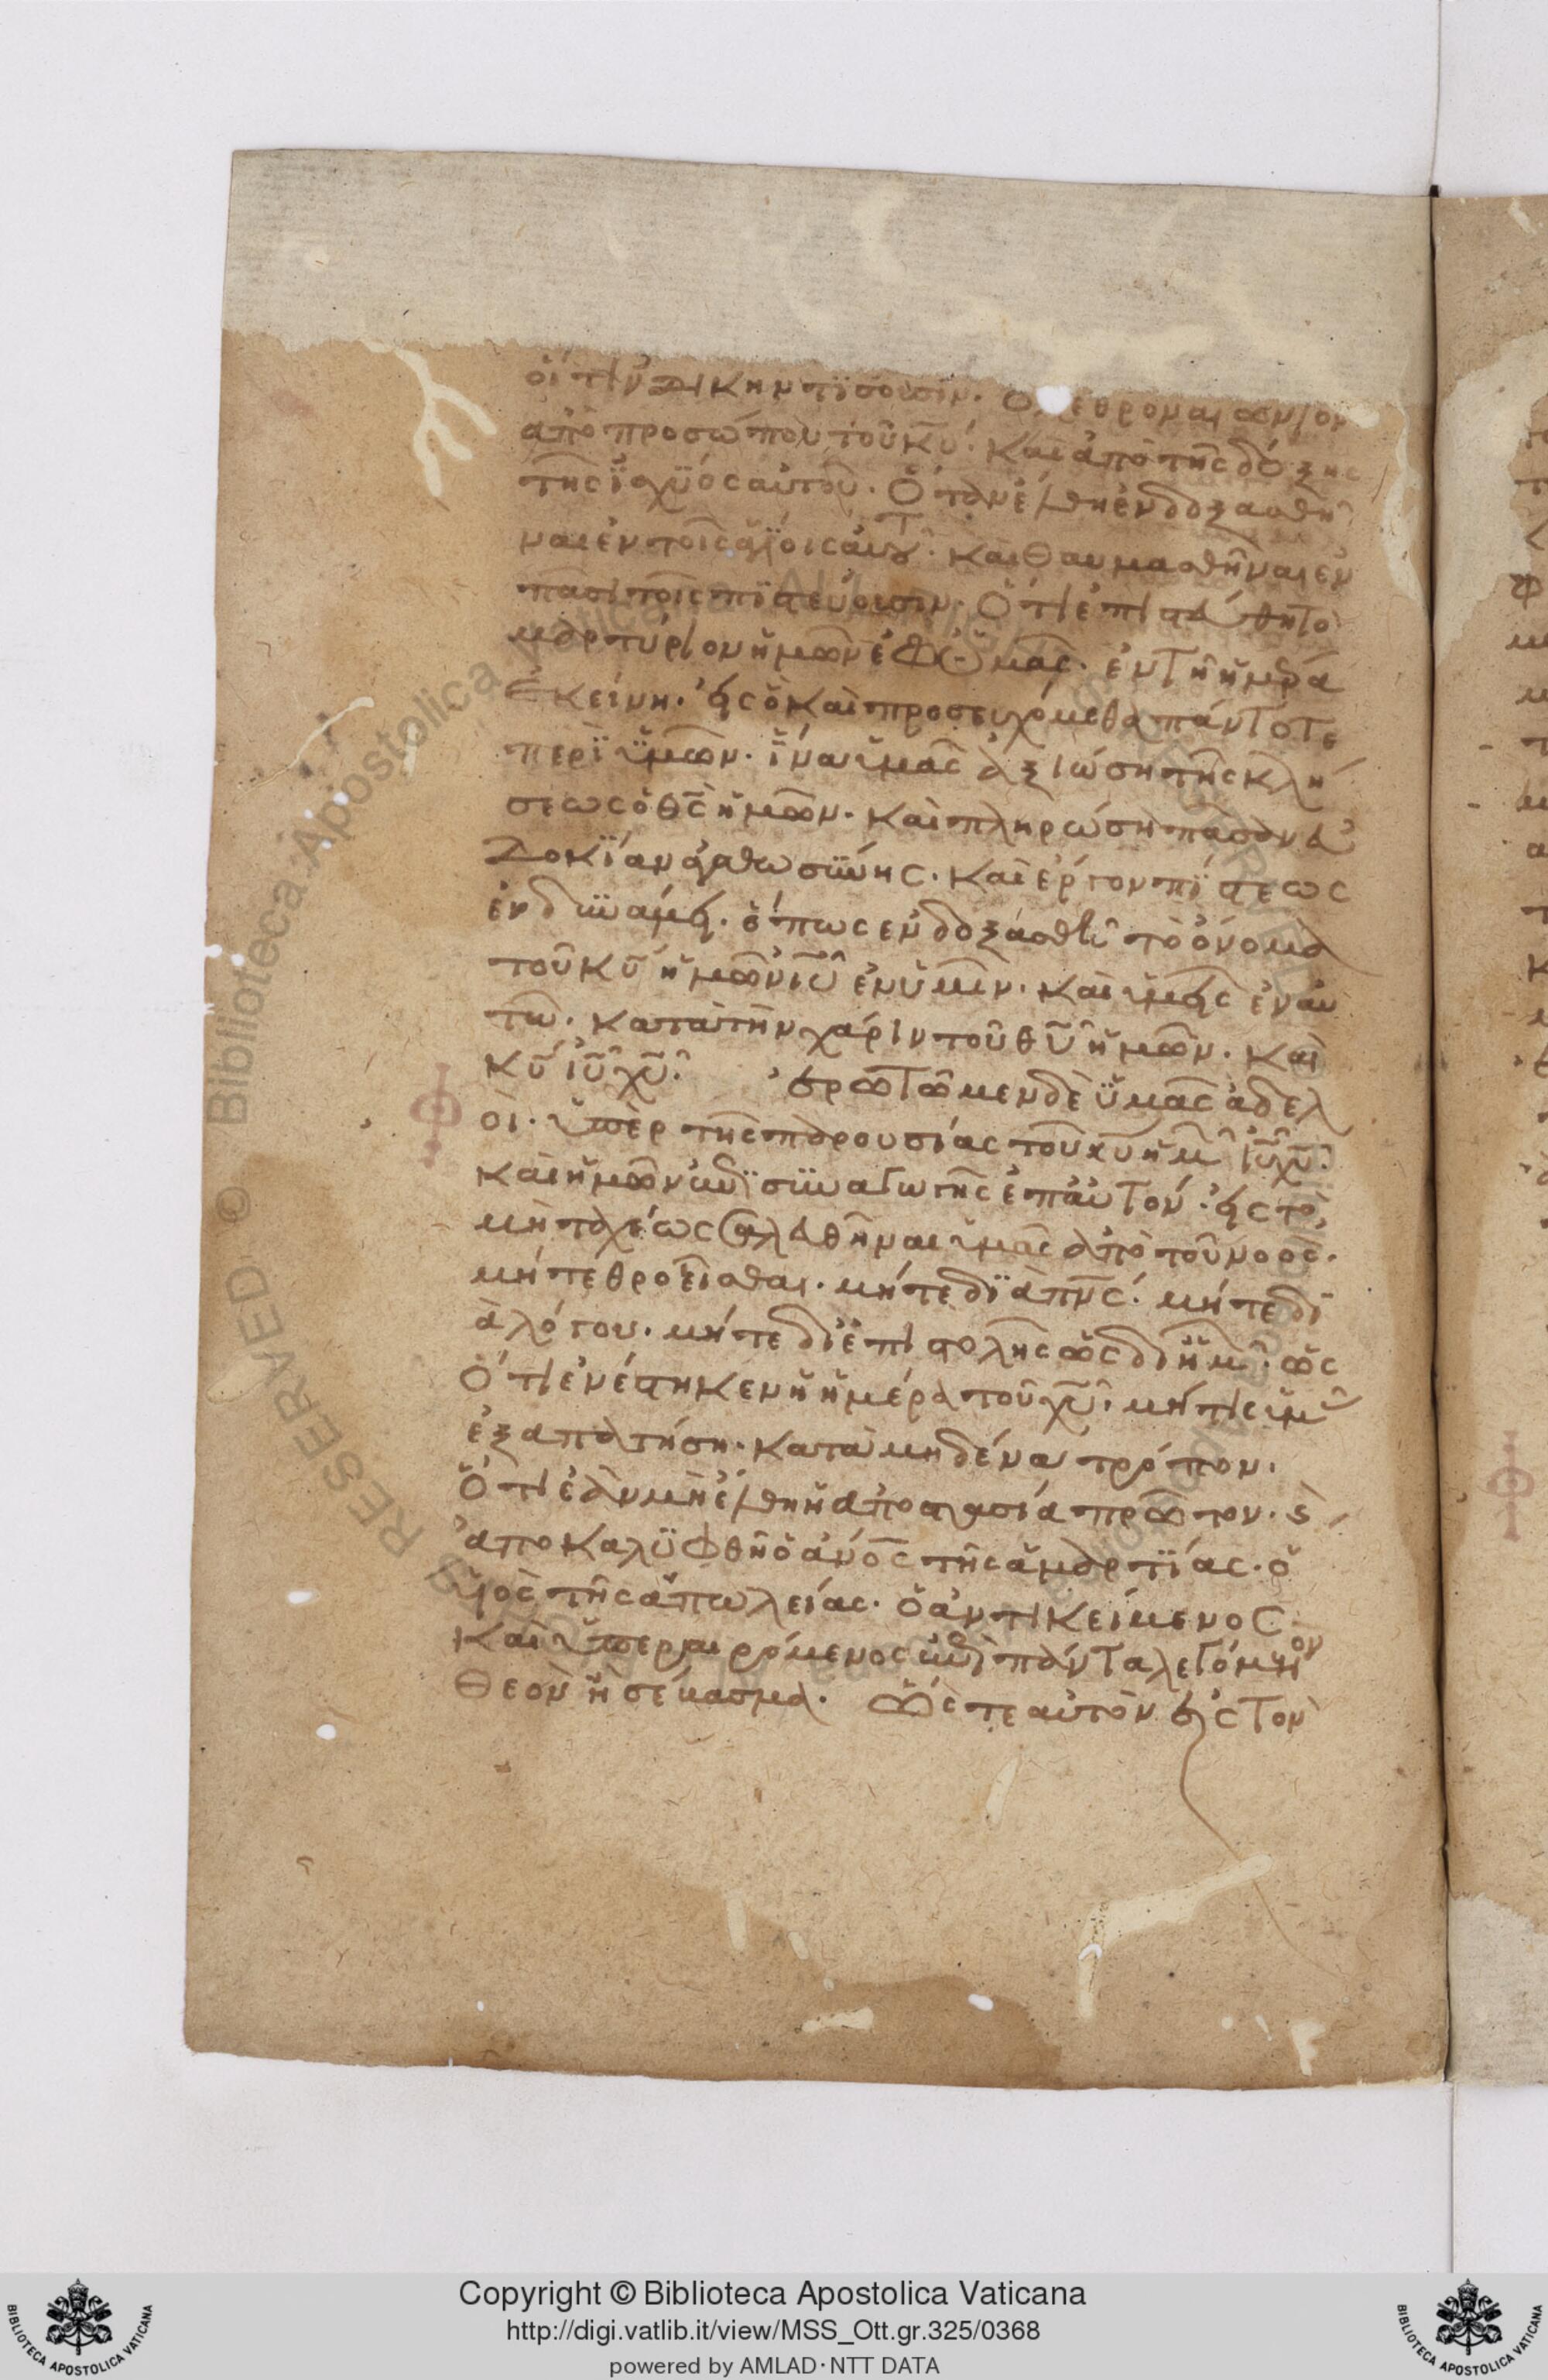 οἱ τινδικην τϊσουσιν. ὅλεθρον αιωνιον
ἀπὸ προσώπου τοῦ κυ̅. καὶ ἀπὸ τῆς δόξης
τῆς ἰσχϋος αὐτοῦ. Ὅταν ἔλθη ἐνδοξασθῆ
ναι ἐν τοῖς ἁγίοις αὐτοῦ. καὶ θαυμασθῆναι ἐν
πᾶσι τοῖς πϊστεύουσιν. Ὅτι ἐπιστεύθη το
μαρτύριον ἡμῶν ἐφ' ὑμᾶς. ἐν τῆ ἡμέρα
ἐκείνη. εἰς ὃ καὶ προσευχόμεθα πάντοτε
περὶ ὑμῶν. ἵνα ὑμᾶς ἀξιώση τῆς κλή
σεως ὁ θς̅ ἡμῶν. καὶ πληρώση πᾶσαν εὐ
δοκίαν ἀγαθωσύνης. καὶ ἔργον πίστεως
ἐν δυνάμει. ὅπως ἐνδοξάσθῆ τὸ ὄνομα
τοῦ κυ̅ ἡμῶν ιυ̅ ἐν ὑμῖν. καὶ ὑμεῖς ἐν αὐ
τῶ. κατὰ τὴν χάριν τοῦ θυ̅ ἡμῶν. καὶ
κυ̅ ιυ̅ χυ̅. ἐρωτῶμεν δὲ ὑμᾶς ἀδελ
οὶ. ὑπὲρ τῆς παρουσίας τοῦ κυ̅ ἡμῶν ιυ̅ χυ̅.
καὶ ἡμῶν ἐπισυναγωγῆς ἐπ' αὐτόν. εἰς τὸ
μὴ ταχέως σαλευθῆναι ὑμᾶς ἀπὸ τοῦ νοὸς.
μήτε θροεῖσθαι. μήτε δϊὰ πνς̅. μήτε δι
ὰ λόγου. μήτε δι' ἐπιστολῆς ὡς δι' ἡμῶν. ὡς
ὅτι ἐνέστηκεν ἡ ἡμέρα τοῦ χυ̅. μήτις ὑμᾶς
ἐξαπατήση. κατὰ μηδένα τρόπον.
Ὅτι ἐὰν μὴ ἔλθη ἡ ἀποστασία πρῶτον. καὶ
ἀποκαλϋφθῆ ὁ ἄνος̅ τῆς ἁμαρτίας. ὁ
υἱὸς τῆς ἀπωλείας. ὁ ἀντικείμενος
καὶ ὑπεραιρόμενος ἐπὶ πάντα λεγόμενον
Θεὸν ἢ σέβασμα. ὥστε αὐτὸν εἰς τὸν
Copyright © Biblioteca Apostolica Vaticana
http://digi.vatlib.it/view/MSS_Ott.gr.325/0368
powered by AMLAD·NTT DATA